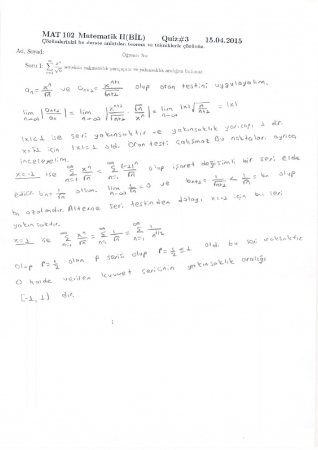 MAT 102 Matematik II(BİL) Quiz#3 15.04.2015
Çözümlerinizi bu dersin anlatılan teorem ve tekniklerle çözünüz.
Ad, Soyad: Öğrenci No:
Soru 1: ∑ xⁿ/√n serisinin yakınsaklık yarıçapını ve yakınsaklık aralığını bulunuz.
aₙ = xⁿ/√n ve aₙ₊₁ = xⁿ⁺¹/√(n+1) olup oran testini uygulayalım.
lim n→∞ |aₙ₊₁/aₙ| = lim n→∞ |xⁿ⁺¹/√(n+1) · √n/xⁿ| = lim n→∞ |x| √(n/(n+1)) = |x|
|x| < 1 ise seri yakınsaktır ve yakınsaklık yarıçapı 1 dir.
x=∓1 için |x|=1 old. Oran testi çalışmaz Bu noktaları ayrıca
incelemeliyim.
x=-1 ise ∑ n=1 ∞ xⁿ/√n = ∑ n=1 ∞ (-1)ⁿ/√n olup işaret değişimli bir seri elde
edilir. bₙ = 1/√n olsun. lim n→∞ 1/√n = 0 ve bₙ₊₁ = 1/√(n+1) < 1/√n = bₙ olup
bₙ azalandır. Alterne seri testinden dolayı x=-1 için bu seri
yakınsaktır.
x=1 ise ∑ n=1 ∞ xⁿ/√n = ∑ n=1 ∞ 1/√n = ∑ n=1 ∞ 1/n^(1/2)
olup P=1/2 olan P serisi olup P=1/2 ≤ 1 old. bu seri ıraksaktır.
O halde verilen kuvvet serisinin yakınsaklık aralığı
[-1, 1) dir.
1